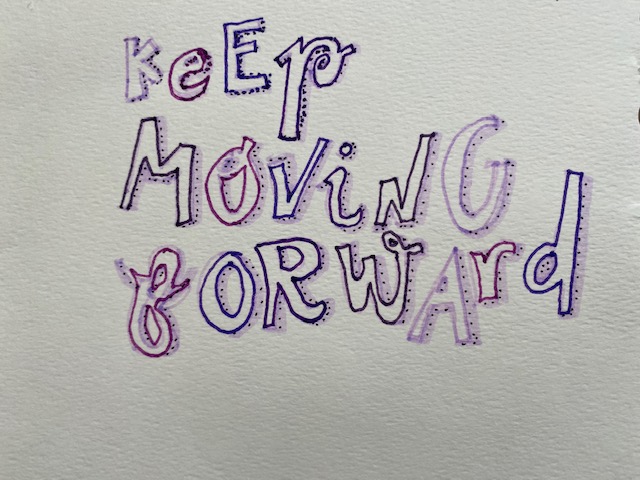 KeEp
MOViNG
fORWArd